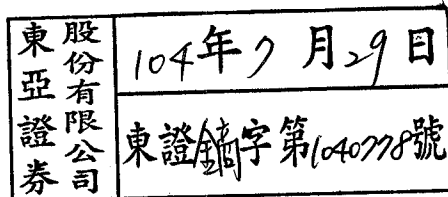 東亞證券
股份有限公司
104年7月29日
東證鎬字第1040778號